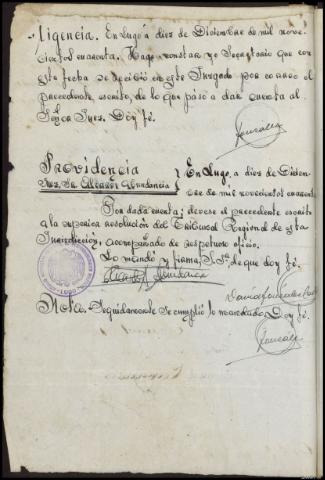 Diligencia. En Lugo a diez de Diciembre de mil nove-
cientos cuarenta. Hago constar yo Secretario que con
esta fecha se recibió en este Juzgado por correo el
precedente escrito, de lo que paso a dar cuenta al
Señor Juez. Doy fé.
Gonzalez
Providencia
Juez, Sr. Alvarez Abundancia
} En Lugo, a diez de Diciem-
bre de mil novecientos cuarenta
Por dada cuenta; elevese el precedente escrito
a la superior resolución del Tribunal Regional de esta
Jurisdicción, acompañado de respetuoso oficio.
Lo mandó y firma S. Sª. de que doy fé.
Alvarez Abundancia
David Gonzalez
Nota. Seguidamente se cumplió lo mandado. Doy fé.
Gonzalez